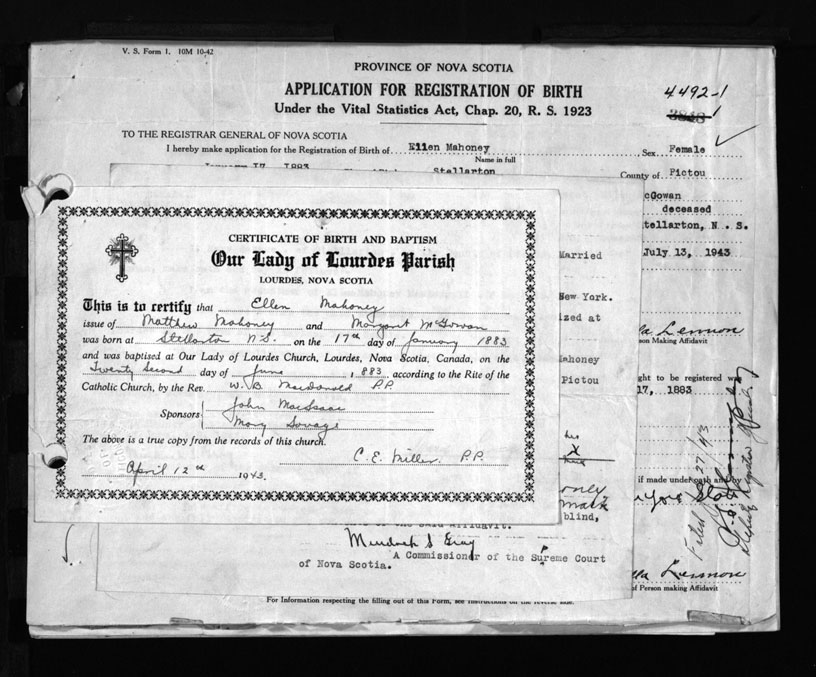 V. S. Form 1. 10M 10-42
PROVINCE OF NOVA SCOTIA
APPLICATION FOR REGISTRATION OF BIRTH
Under the Vital Statistics Act, Chap. 20, R. S. 1923
4492-1
TO THE REGISTRAR GENERAL OF NOVA SCOTIA
I hereby make application for the Registration of Birth of Ellen Mahoney Sex Female
Name in full
January 17, 1883 Stellarton County of Pictou
cGowan
deceased
tellarton, N. S.
July 13, 1943
Married
New York.
ized at
Lennon
son Making Affidavit
ahoney
Pictou
ght to be registered w
17, 1883
his
X
only
mark
blind,
if made under oath and by
Filed
CERTIFICATE OF BIRTH AND BAPTISM
Our Lady of Lourdes Parish
LOURDES, NOVA SCOTIA
This is to certify that Ellen Mahoney
issue of Matthew Mahoney and Margaret McGowan
was born at Stellarton N.S. on the 17th day of January 1883
and was baptised at Our Lady of Lourdes Church, Lourdes, Nova Scotia, Canada, on the
Twenty Second day of June 1883 according to the Rite of the
Catholic Church, by the Rev. W. B. Macdonald P.P.
Sponsors John MacIsaac
Mary Savage
The above is a true copy from the records of this church.
C. E. Miller. P.P.
April 12th 1943.
of the said Affidavit.
Murdoch S Gray
A Commissioner of the Supreme Court
of Nova Scotia.
Lennon
of Person making Affidavit
For Information respecting the filling out of this Form, see instructions on the reverse side.